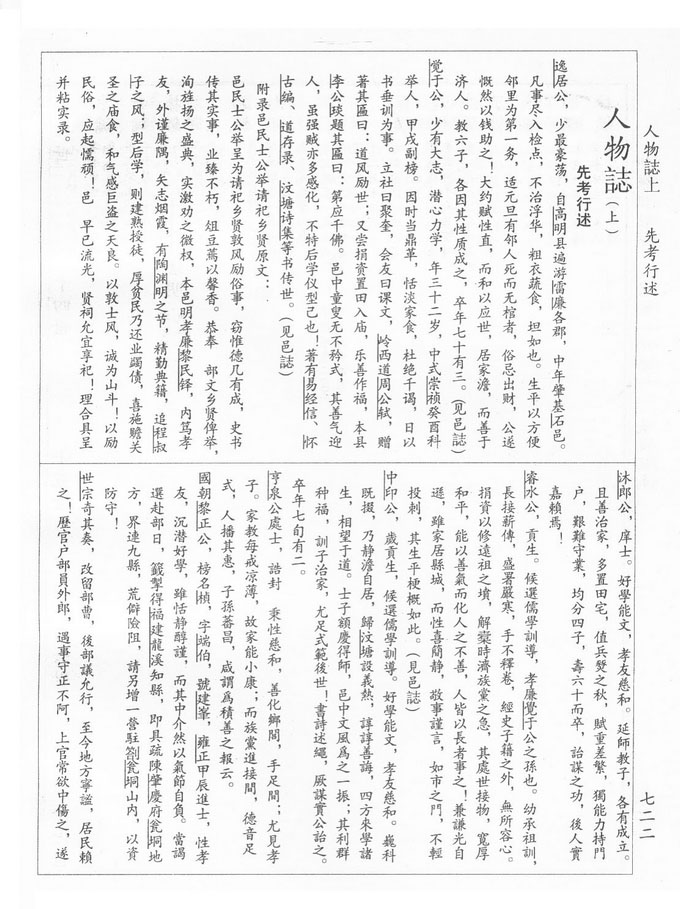 人物誌上　先考行述
七二二
人物誌（上）
先考行述
逸居公，少最豪荡，自高明县遍游雷廉各郡，中年肇基石邑。
凡事尽入检点，不治浮华，粗衣蔬食，坦如也。生平以方便
邻里为第一务，适元旦有邻人死而无棺者，俗忌出财，公遂
慨然以钱助之！大约赋性直，而和以应世，居家澹，而善于
济人。教六子，各因其性质成之，卒年七十有三。（见邑誌）
觉于公，少有大志，潜心力学，年三十二岁，中式崇祯癸酉科
举人，甲戌副榜。因时当鼎革，恬淡家食，杜绝干谒，日以
书垂训为事。立社曰聚奎，会友曰课文，岭西道周公轼，赠
著其匾曰：道风励世；又尝捐资置田入庙，乐善作福，本县
李公琰题其匾曰：第应千佛。邑中童叟无不矜式，其善气迎
人，虽强贼亦多感化，不特后学仪型己也！著有易经信、怀
古编、道存录、汶塘诗集等书传世。（见邑誌）
附录邑民士公举请祀乡贤原文：
邑民士公举呈为请祀乡贤敦风励俗事，窃惟德几有成，史书
传其实事，业臻不朽，俎豆荐以馨香。恭奉　部文乡贤俾举，
洵旌扬之盛典，实激劝之微权，本邑明孝廉黎民铎，内笃孝
友，外谨廉隅，矢志烟霞，有陶渊明之节，精勤典籍，追程叔
子之风；型后学，则建熟授徒，厚贫民乃还业蠲债，喜施赡关
圣之庙食，和气感巨盗之天良。以敦士风，诚为山斗！以励
民俗，应起懦顽！邑　早已流光，贤祠允宜享祀！理合具呈
并粘实录。
沐郎公，庠士。好學能文，孝友慈和。延師教子，各有成立。
且善治家，多置田宅，值兵燹之秋，賦重差繁，獨能力持門
户，艱難守業，均分四子，壽六十而卒，詒謀之功，後人實
嘉賴焉！
睿水公，貢生。候選儒學訓導，孝廉覺于公之孫也。幼承祖訓，
長接薪傳，盛署嚴寒，手不釋卷，經史子籍之外，無所容心。
捐資以修遠祖之墳，解橐時濟族黨之急，其處世接物，寬厚
和平，能以善氣而化人之不善，人皆以長者事之！兼謙光自
遜，雖家居縣城，而性喜簡静，敬事謹言，如市之門，不輕
投刺，其生平梗概如此。（見邑誌）
中印公，歲貢生，候選儒學訓導。好學能文，孝友慈和。巍科
既掇，乃静澹自居，歸汶塘設義熟，諄諄善誨，四方來學諸
生，相望于道。士子額慶得師，邑中文風爲之一振；其利群
种福，訓子治家，尤足式範後世！書詩述繩，厥謀實公詒之。
卒年七旬有二。
亨泉公處士，誥封　秉性慈和，善化鄉閭，手足間；尤見孝
子。家教每戒凉薄，故家能小康；而族黨進接間，德音足
式，人播其惠，子孫蕃昌，咸謂爲積善之報云。
國朝黎正公，榜名楨，字端伯，號建峯，雍正甲辰進士，性孝
友，沉潜好學，雖恬静醇謹，而其中介然以氣節自負。當謁
選赴部日，籤掣得福建龍溪知縣，即具疏陳肇慶府瓮垌地
方，界連九縣，荒僻險阻，請另增一營駐劄瓮垌山内，以資
防守！
世宗奇其奏，改留部曹，後部議允行，至今地方寧謐，居民賴
之！歷官户部員外郎，遇事守正不阿，上官常欲中傷之，遂